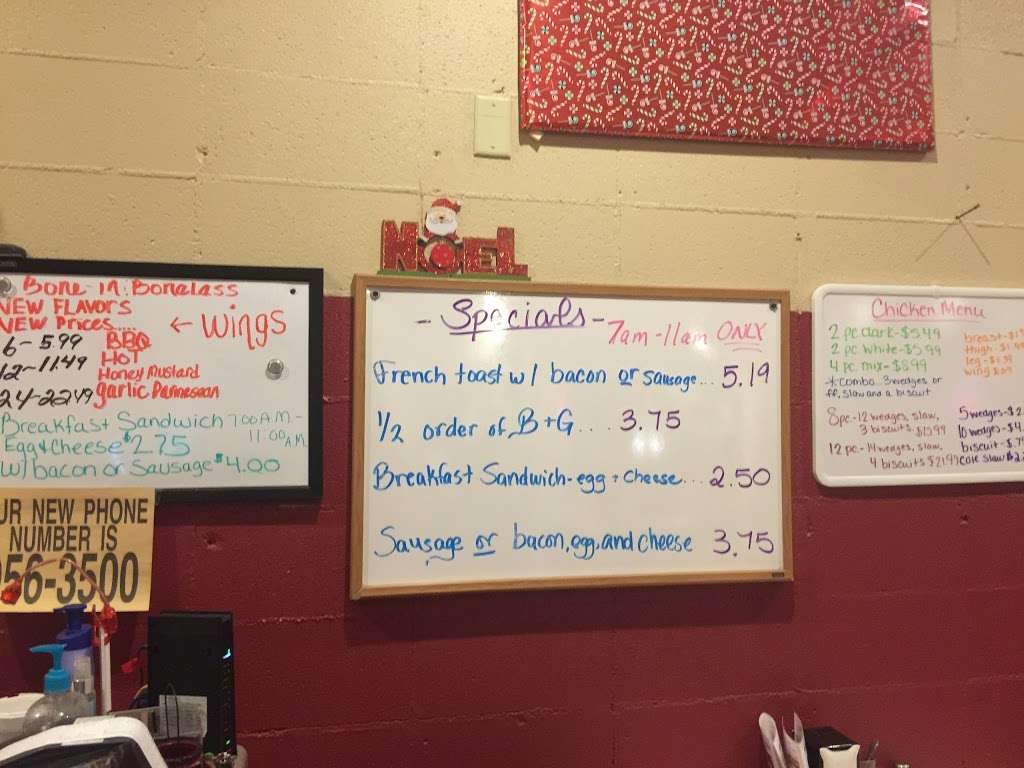 NOEL
Bone-in. Boneless
NEW FLAVORS
NEW Prices....
← Wings
6 - 5.99 BBQ
12 - 11.49 HOT
Honey Mustard
24 - 22.49 garlic Parmesan
Breakfast Sandwich 7:00 A.M. -
Egg & Cheese $2.75 11:00 A.M.
w/ bacon or Sausage $4.00
UR NEW PHONE
NUMBER IS
56-3500
- Specials -
7am - 11am ONLY
French toast w/ bacon or sausage... 5.19
1/2 order of B+G.... 3.75
Breakfast Sandwich - egg + cheese... 2.50
Sausage or bacon, egg, and cheese 3.75
Chicken Menu
2 pc dark - $5.49
2 pc white - $5.99
4 pc. mix - $8.99
*combo. 3 wedges or
ff, slaw and a biscuit
breast -
thigh -
leg -
wing
8pc. - 12 wedges, slaw,
3 biscuits
12 pc. - 14 wedges, slaw,
4 biscuits
5 wedges - $2.
10 wedges - $4.
biscuit - $.7
cole slaw $2.